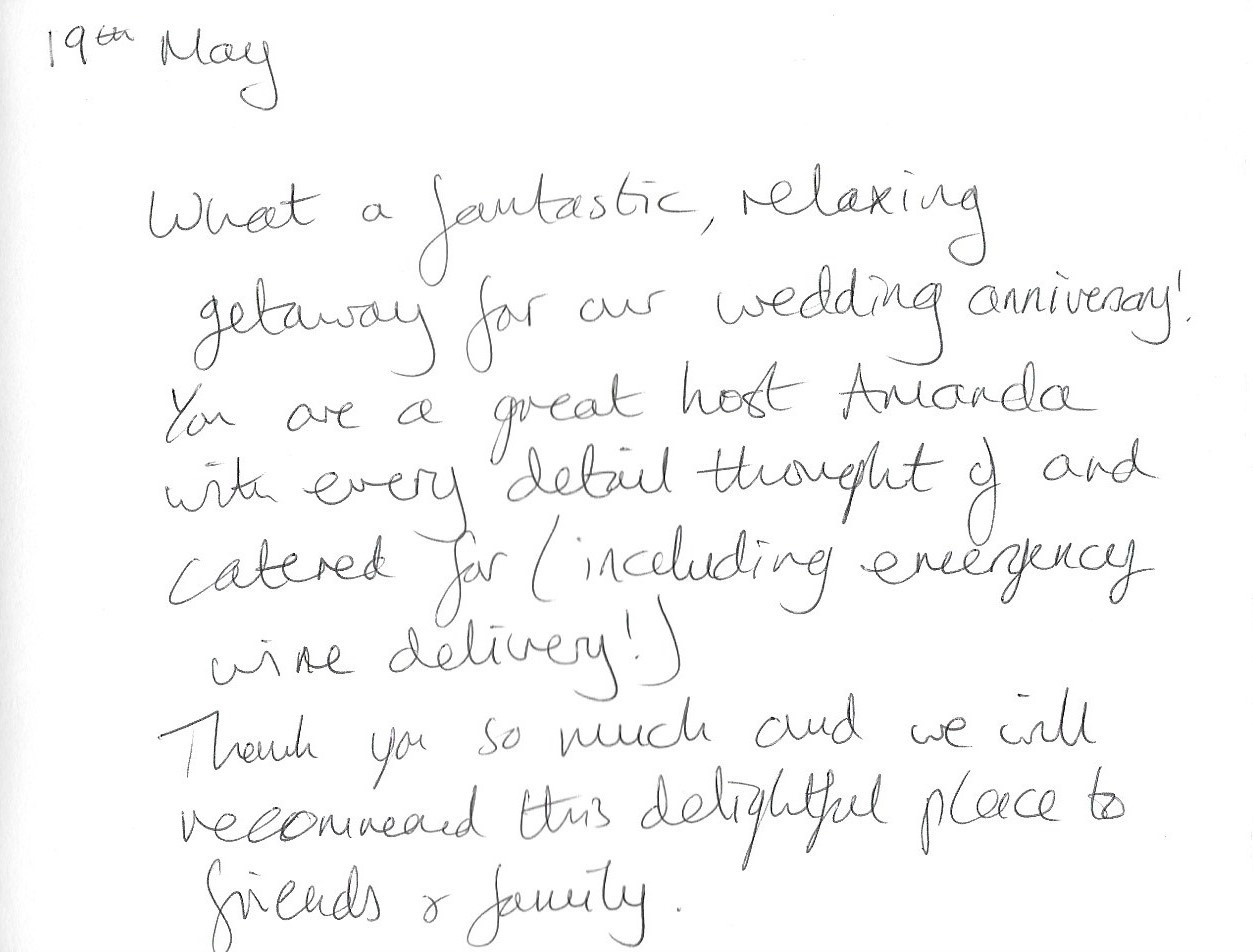 19th May
What a fantastic, relaxing
getaway for our wedding anniversary!
You are a great host Amanda
with every detail thought of and
catered for (including emergency
wine delivery!)
Thank you so much and we will
recommend this delightful place to
friends & family.